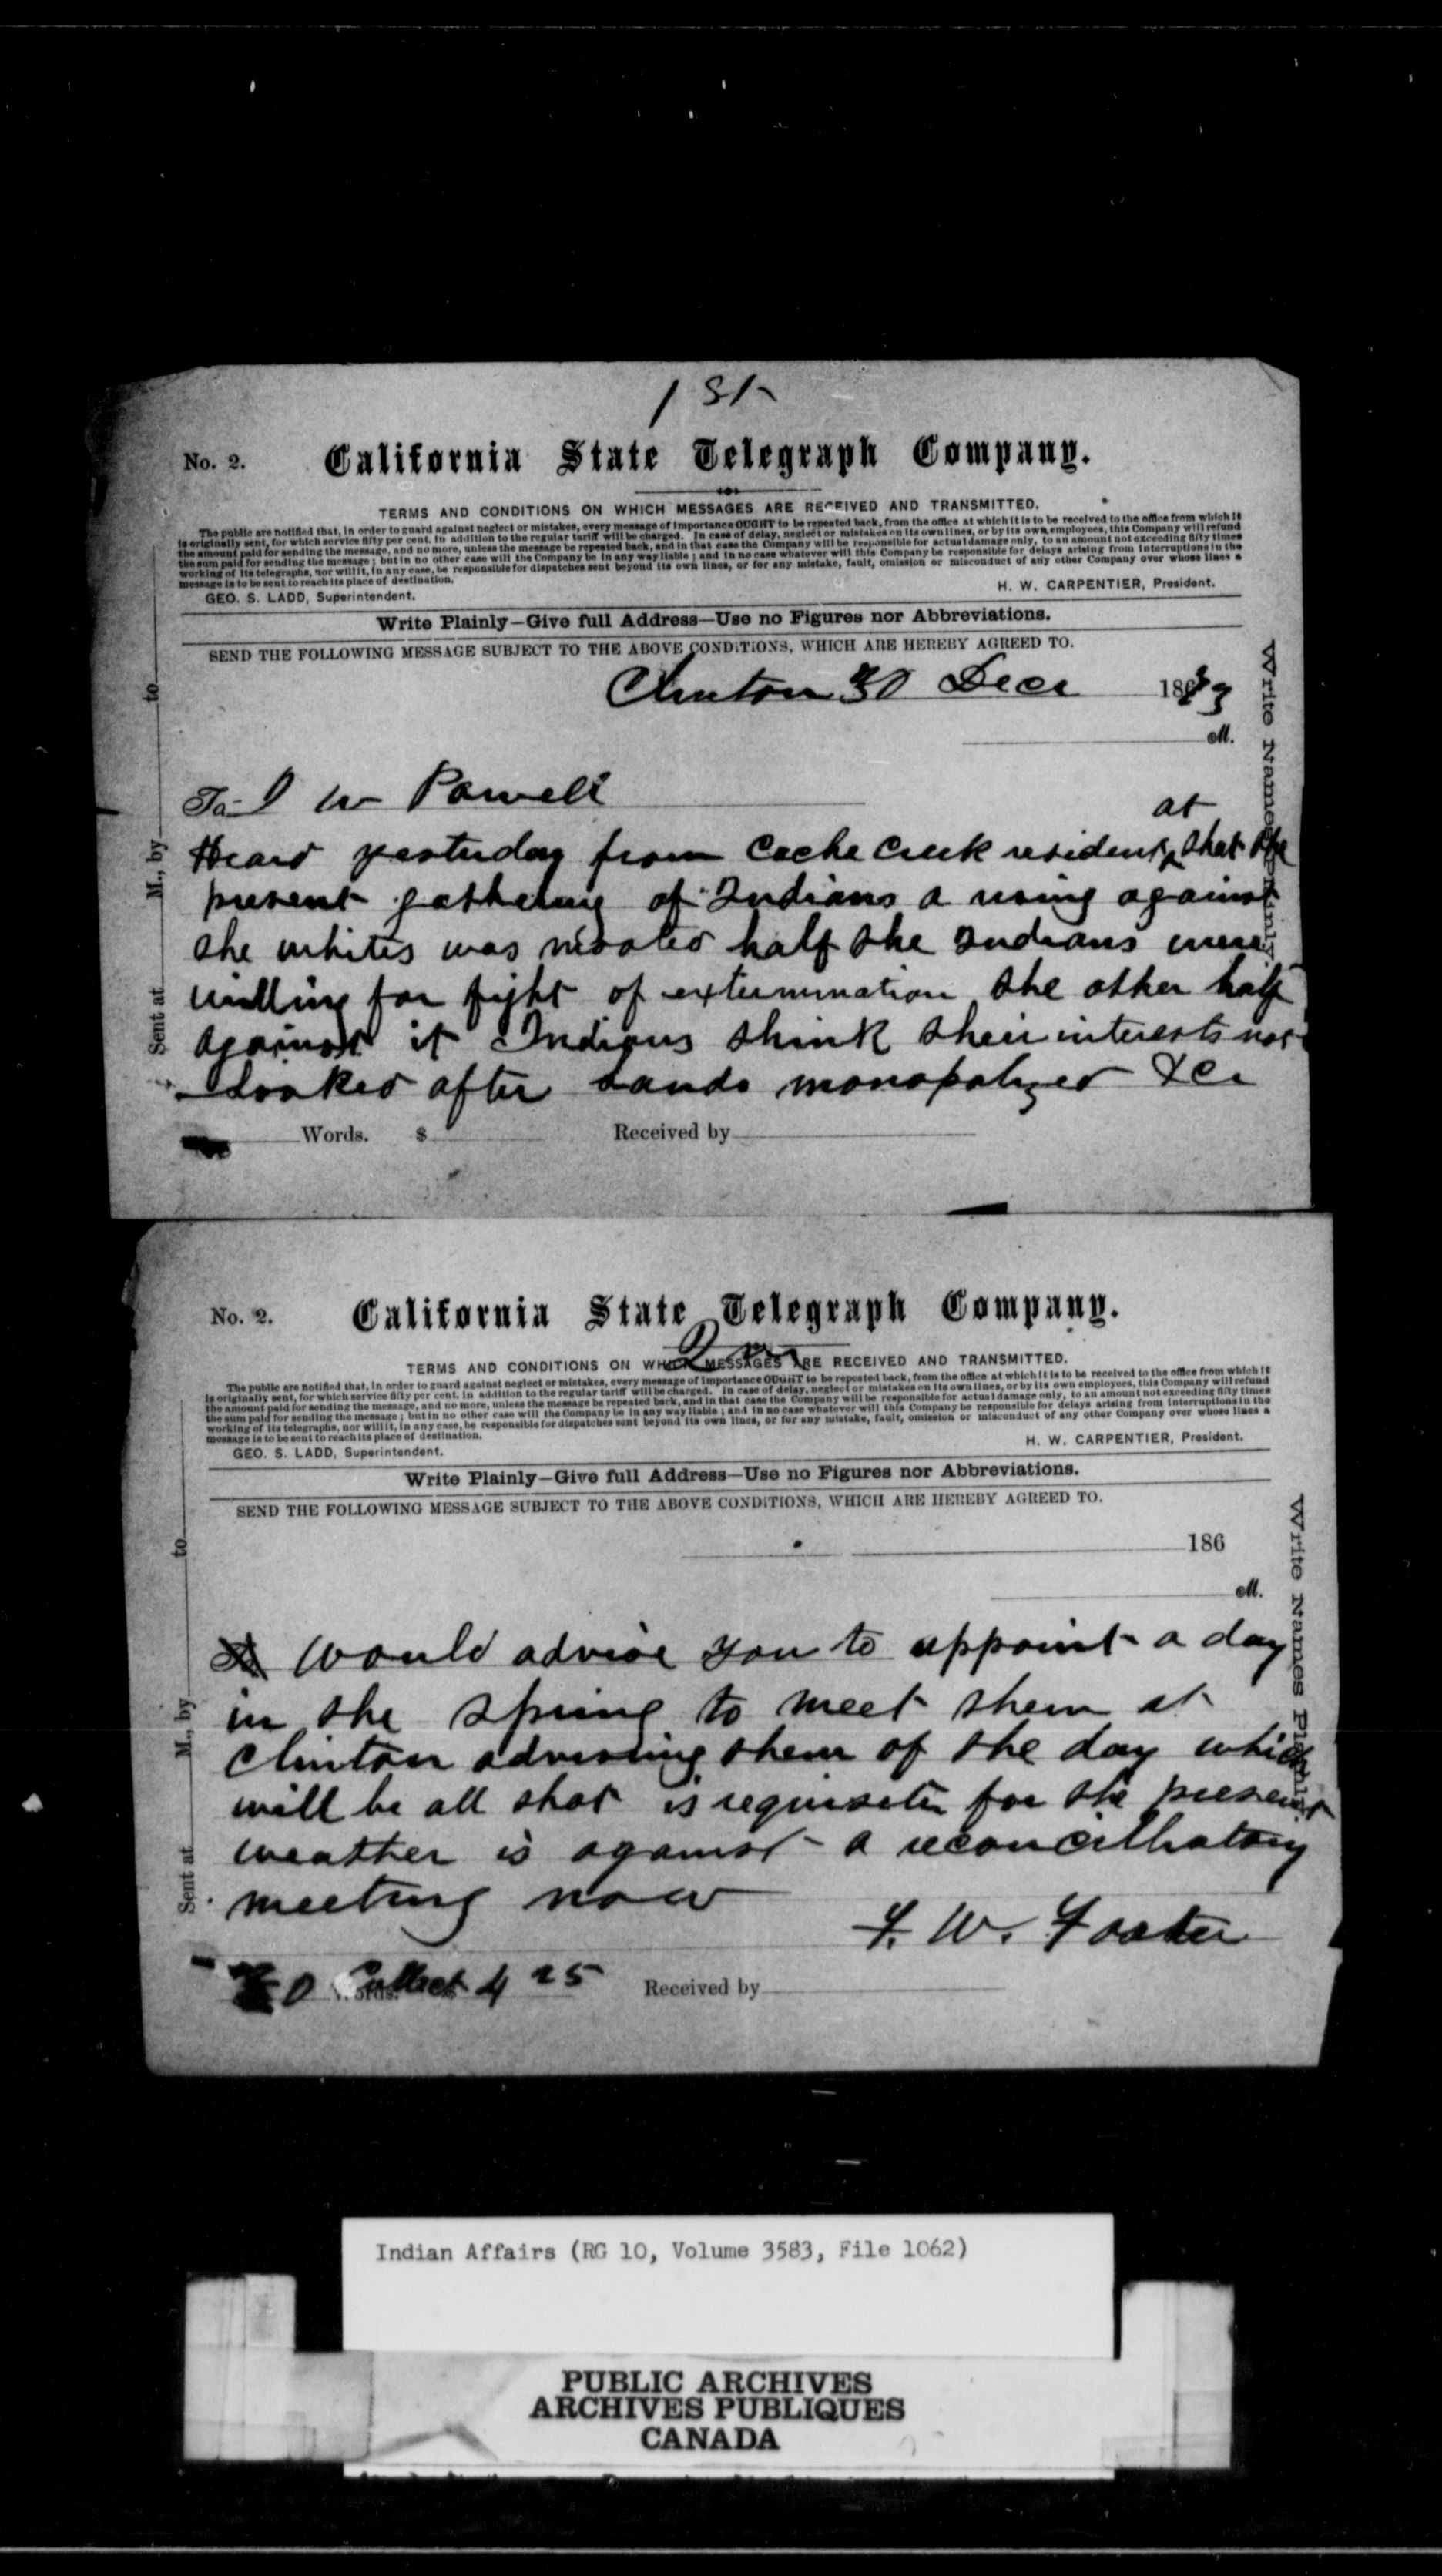 1st
No. 2. California State Telegraph Company.
TERMS AND CONDITIONS ON WHICH MESSAGES ARE RECEIVED AND TRANSMITTED.
The public are notified that, in order to guard against neglect or mistakes, every message of importance OUGHT to be repeated back, from the office at which it is to be received to the office from which it
is originally sent, for which service fifty per cent. in addition to the regular tariff will be charged. In case of delay, neglect or mistakes on its own lines, or by its own employees, this Company will refund
the amount paid for sending the message, and no more, unless the message be repeated back, and in that case the Company will be responsible for actual damage only, to an amount not exceeding fifty times
the sum paid for sending the message; but in no other case will the Company be in any way liable; and in no case whatever will this Company be responsible for delays arising from interruptions in the
working of its telegraphs, nor will it, in any case, be responsible for dispatches sent beyond its own lines, or for any mistake, fault, omission or misconduct of any other Company over whose lines a
message is to be sent to reach its place of destination.
GEO. S. LADD, Superintendent. H. W. CARPENTIER, President.
Write Plainly—Give full Address—Use no Figures nor Abbreviations.
SEND THE FOLLOWING MESSAGE SUBJECT TO THE ABOVE CONDITIONS, WHICH ARE HEREBY AGREED TO.
Clinton 30 Decr 1873
M.
To I W Powell
at
Heard yesterday from Cache Creek resident that the
present gathering of Indians a rising against
the whites was mooted half the Indians were
willing for fight of extermination the other half
against it Indians think their interests not
looked after Lands monopolized &c
Words. $ Received by
Sent at M., by to
Write Names Plainly.
No. 2. California State Telegraph Company.
2
TERMS AND CONDITIONS ON WHICH MESSAGES ARE RECEIVED AND TRANSMITTED.
The public are notified that, in order to guard against neglect or mistakes, every message of importance OUGHT to be repeated back, from the office at which it is to be received to the office from which it
is originally sent, for which service fifty per cent. in addition to the regular tariff will be charged. In case of delay, neglect or mistakes on its own lines, or by its own employees, this Company will refund
the amount paid for sending the message, and no more, unless the message be repeated back, and in that case the Company will be responsible for actual damage only, to an amount not exceeding fifty times
the sum paid for sending the message; but in no other case will the Company be in any way liable; and in no case whatever will this Company be responsible for delays arising from interruptions in the
working of its telegraphs, nor will it, in any case, be responsible for dispatches sent beyond its own lines, or for any mistake, fault, omission or misconduct of any other Company over whose lines a
message is to be sent to reach its place of destination.
GEO. S. LADD, Superintendent. H. W. CARPENTIER, President.
Write Plainly—Give full Address—Use no Figures nor Abbreviations.
SEND THE FOLLOWING MESSAGE SUBJECT TO THE ABOVE CONDITIONS, WHICH ARE HEREBY AGREED TO.
186
M.
Would advise you to appoint a day
in the spring to meet them at
Clinton advising them of the day which
will be all that is requisite for the present
weather is against a reconcilhatory
meeting now
F. W. Foster
Collect 4 25 Received by
Sent at M., by to
Write Names Plainly.
Indian Affairs (RG 10, Volume 3583, File 1062)
PUBLIC ARCHIVES
ARCHIVES PUBLIQUES
CANADA